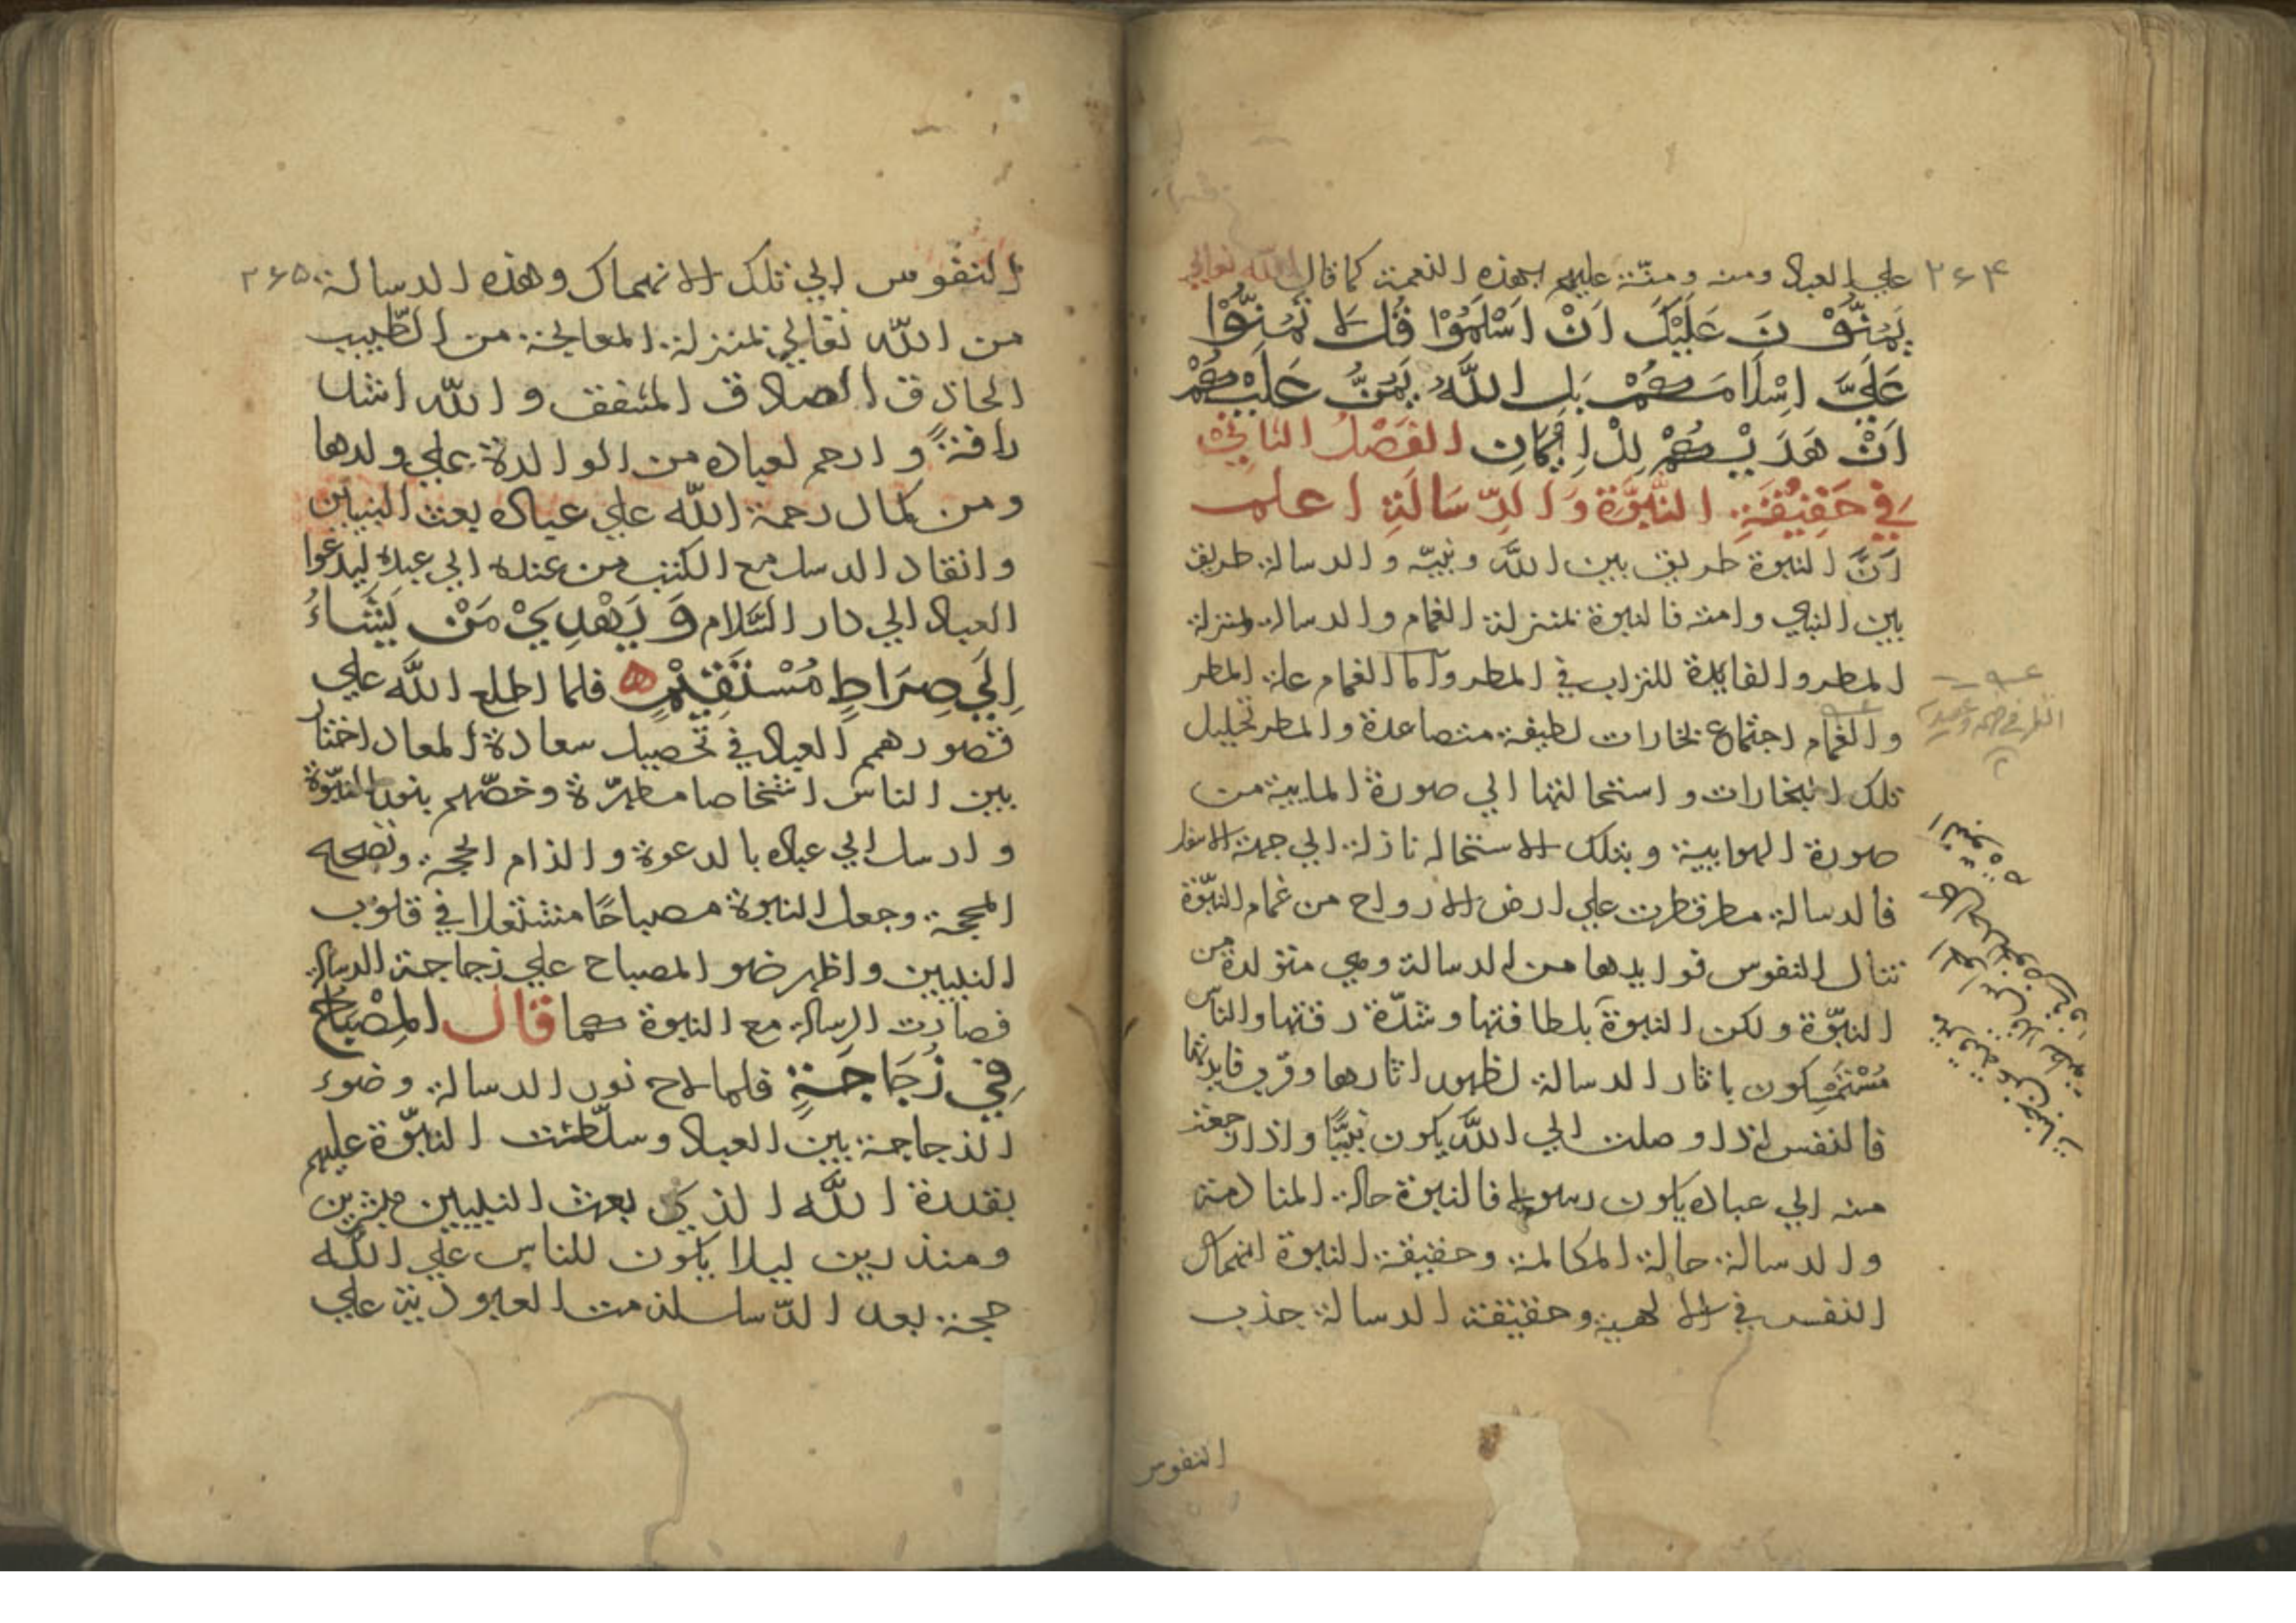 ۲۶۴ علي العباد ومنه ومنّة عليهم بهذه النعمة كما قال الله تعالي
يَمُنُّوْنَ عَلَيْكَ اَنْ اَسْلَمُوْا قُل لا تَمُنُّوْا
عَلَيَّ اِسْلَامَكُمْ بَلِ اللَّهُ يَمُنُّ عَلَيْكُمْ
اَنْ هَدَيْكُمْ لِلْاِيْمَانِ الفَصْلُ الثاني
فِي حَقِيْقَةِ النُّبُوَّةِ وَالرِّسَالَةِ اعلم
اَنَّ النبوة طريق بين اللَّه ونبيّه والرسالة طريق
بين النبي وامته فالنبوة بمنزلة الغمام والرسالة بمنزلة
المطر والفايدة للتراب في المطر وامّا الغمام علة المطر
والغمام اجتماع بخارات لطيفة متصاعدة والمطر تحليل
تلك البخارات واستحالتها الي صورة المايية من
صورة الهوايية وبتلك الاستحاله نازلة الي جهة الاسفل
فالرسالة مطر قطرت علي ارض الارواح من غمام النبّوة
تنال النفوس فوايدها من الرسالة وهي متولدة من
النبّوة ولكن النبوة بلطافتها وشدّة رقتها والناس
مُسْتَمْسِكون باثار الرسالة لظهور اثارها وقرب فايدتها
فالنفس اذا وصلت الي اللَّه يكون نبيًّا واذا رجعت
منه الي عباده يكون رسولا فالنبوة حالة المنادمة
والرسالة حالة المكالمة وحقيقة النبوة انهماك
النفس في الالهية وحقيقة الرسالة جذب
النفوس
النفوس الي تلك الانهماك وهذه الرسالة ۲۶۵
من اللّه تعالي بمنزلة المعالجة من الطّبيب
الحاذق الصادق المشفق واللّه اشد
رافةً وارحم لعباده من الوالدة علي ولدها
ومن كمال رحمة اللّه علي عباده بعث النبيين
وانفاذ الرسل مع الكتب من عنده الي عبده ليدعوا
العباد الي دار السَّلام وَيَهْدِيْ مَنْ يَشَاءُ
اِلَي صِرَاطٍ مُسْتَقِيْمٍ ه فلما اطلع اللَّه علي
قصور همم العباد في تحصيل سعادة المعاد اختار
بين الناس اشخاصا مطهّرة وخصّهم بنور النبّوة
وارسل الي عباده بالدعوة والزام الحجة ونصحه
المحجة وجعل النبوة مصباحًا مشتعلا في قلوب
النبيين واظهر ضو المصباح علي زجاجة الرسالة
فصارت الرسالة مع النبوة كما قال المِصْبَاحُ
فِيْ زُجَاجَةٍ فلما لاح نور الرسالة وضوء
الزجاجة بين العباد وسلّطت النبّوة عليهم
بقدرة اللَّه الذي بعث النبيين مبشرين
ومنذرين ليلا يكون للناس علي اللَّه
حجة بعد الرّسل سلسلة من العبوديّة علي